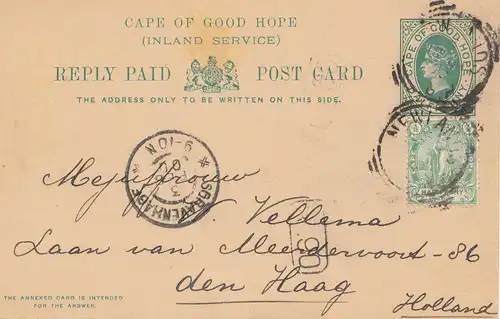 CAPE OF GOOD HOPE
(INLAND SERVICE)
REPLY PAID POST CARD
THE ADDRESS ONLY TO BE WRITTEN ON THIS SIDE.
CAPE OF GOOD HOPE
NEWLANDS
'SGRAVENHAGE
9-10N
Mejufvrouw
J. Vellema
Laan van Meerdervoort-86
den Haag
Holland
THE ANNEXED CARD IS INTENDED
FOR THE ANSWER.